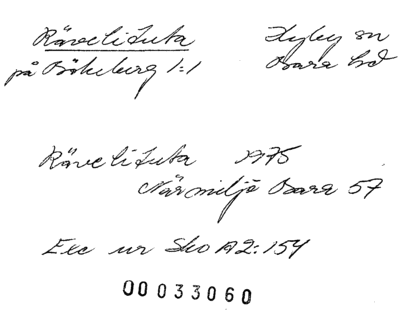 Rävelituta Hyby sn
på Bökeberg 1:1 Bara hd
Rävelituta 1975
Närmiljö Bara 57
Exc ur Sko A2:154
00033060